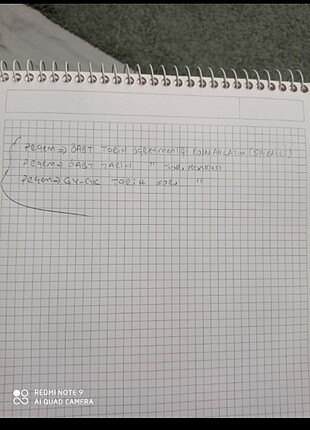 Pegem => ÖABT TARİH ÖĞRETMENLİĞİ KONU ANLATIM
Pegem => ÖABT TARİH " SORU BANKASI
Pegem => GY-GK TARİH SORU "
REDMI NOTE 9
AI QUAD CAMERA